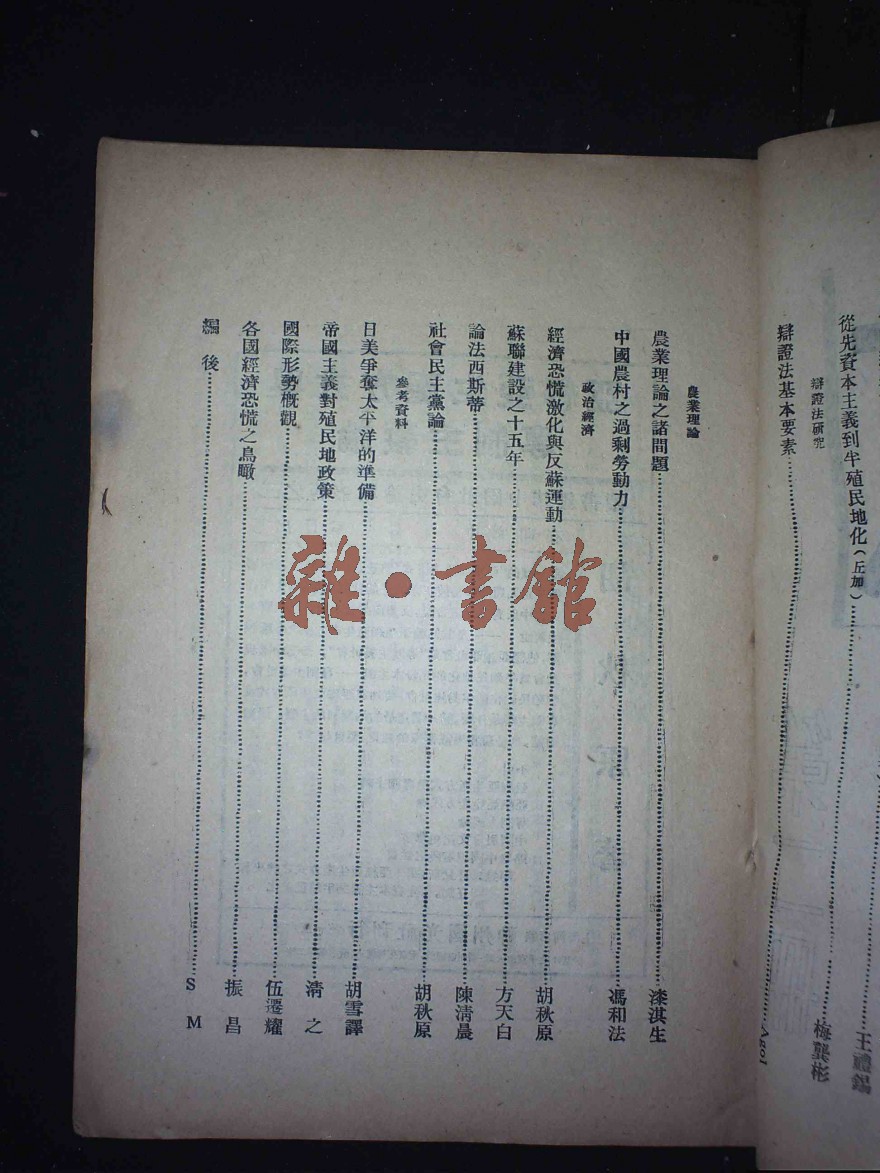 從先資本主義到半殖民地化（丘加）……王禮錫
辯證法研究
梅龔彬
辯證法基本要素……Agol
農業理論
農業理論之諸問題……漆淇生
中國農村之過剩勞動力……馮和法
政治經濟
經濟恐慌激化與反蘇運動……胡秋原
蘇聯建設之十五年……方天白
論法西斯蒂……陳清晨
社會民主黨論……胡秋原
參考資料
日美爭奪太平洋的準備……胡雪譯
帝國主義對殖民地政策……清之
國際形勢概觀……伍遷耀
各國經濟恐慌之鳥瞰……振昌
編後……S M
雜·書館